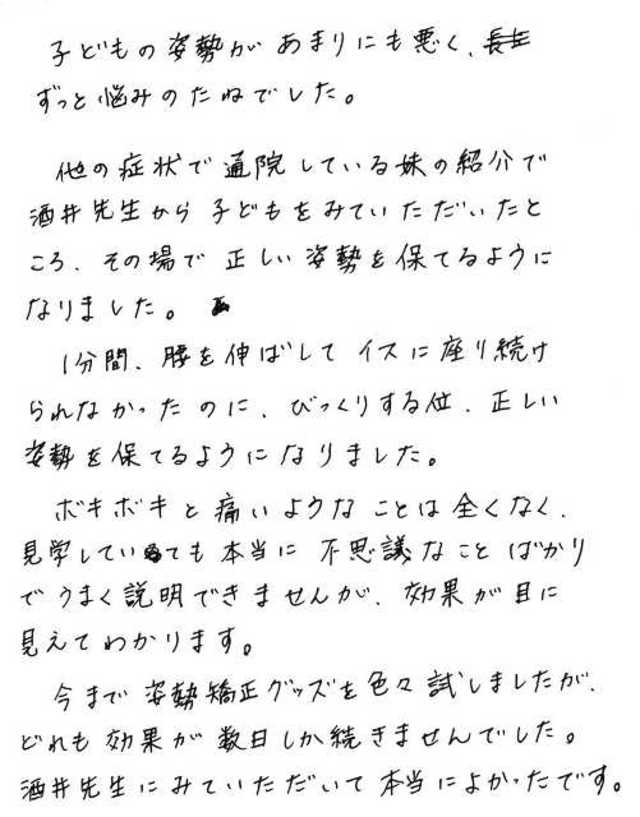 子どもの姿勢があまりにも悪く、
ずっと悩みのたねでした。
他の症状で通院している妹の紹介で
酒井先生から子どもをみていただいたと
ころ、その場で正しい姿勢を保てるように
なりました。
1分間、腰を伸ばしてイスに座り続け
られなかったのに、びっくりする位、正しい
姿勢を保てるようになりました。
ボキボキと痛いようなことは全くなく、
見学していても本当に不思議なことばかり
でうまく説明できませんが、効果が目に
見えてわかります。
今まで姿勢矯正グッズを色々試しましたが、
どれも効果が数日しか続きませんでした。
酒井先生にみていただいて本当によかったです。